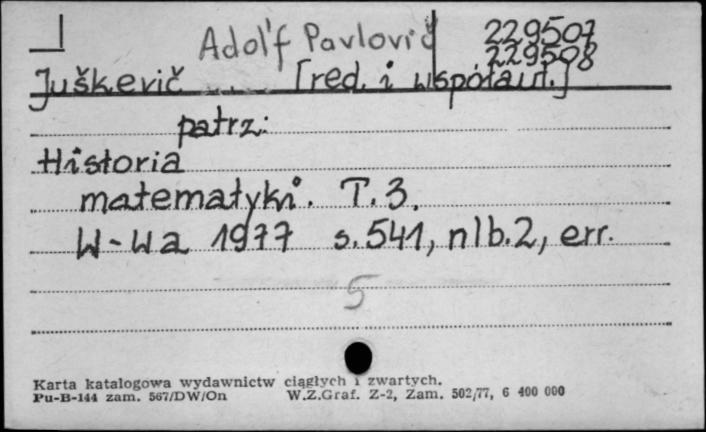 Adol'f Pavlovič 229507
229508
Juškevič ... [red. i współaut.]
patrz:
Historia
matematyki. T.3.
W-wa 1977 s.541, nlb.2, err.
5
Karta katalogowa wydawnictw ciągłych i zwartych.
Pu-B-144 zam. 567/DW/On W.Z.Graf. Z-2, Zam. 502/77, 6 400 000